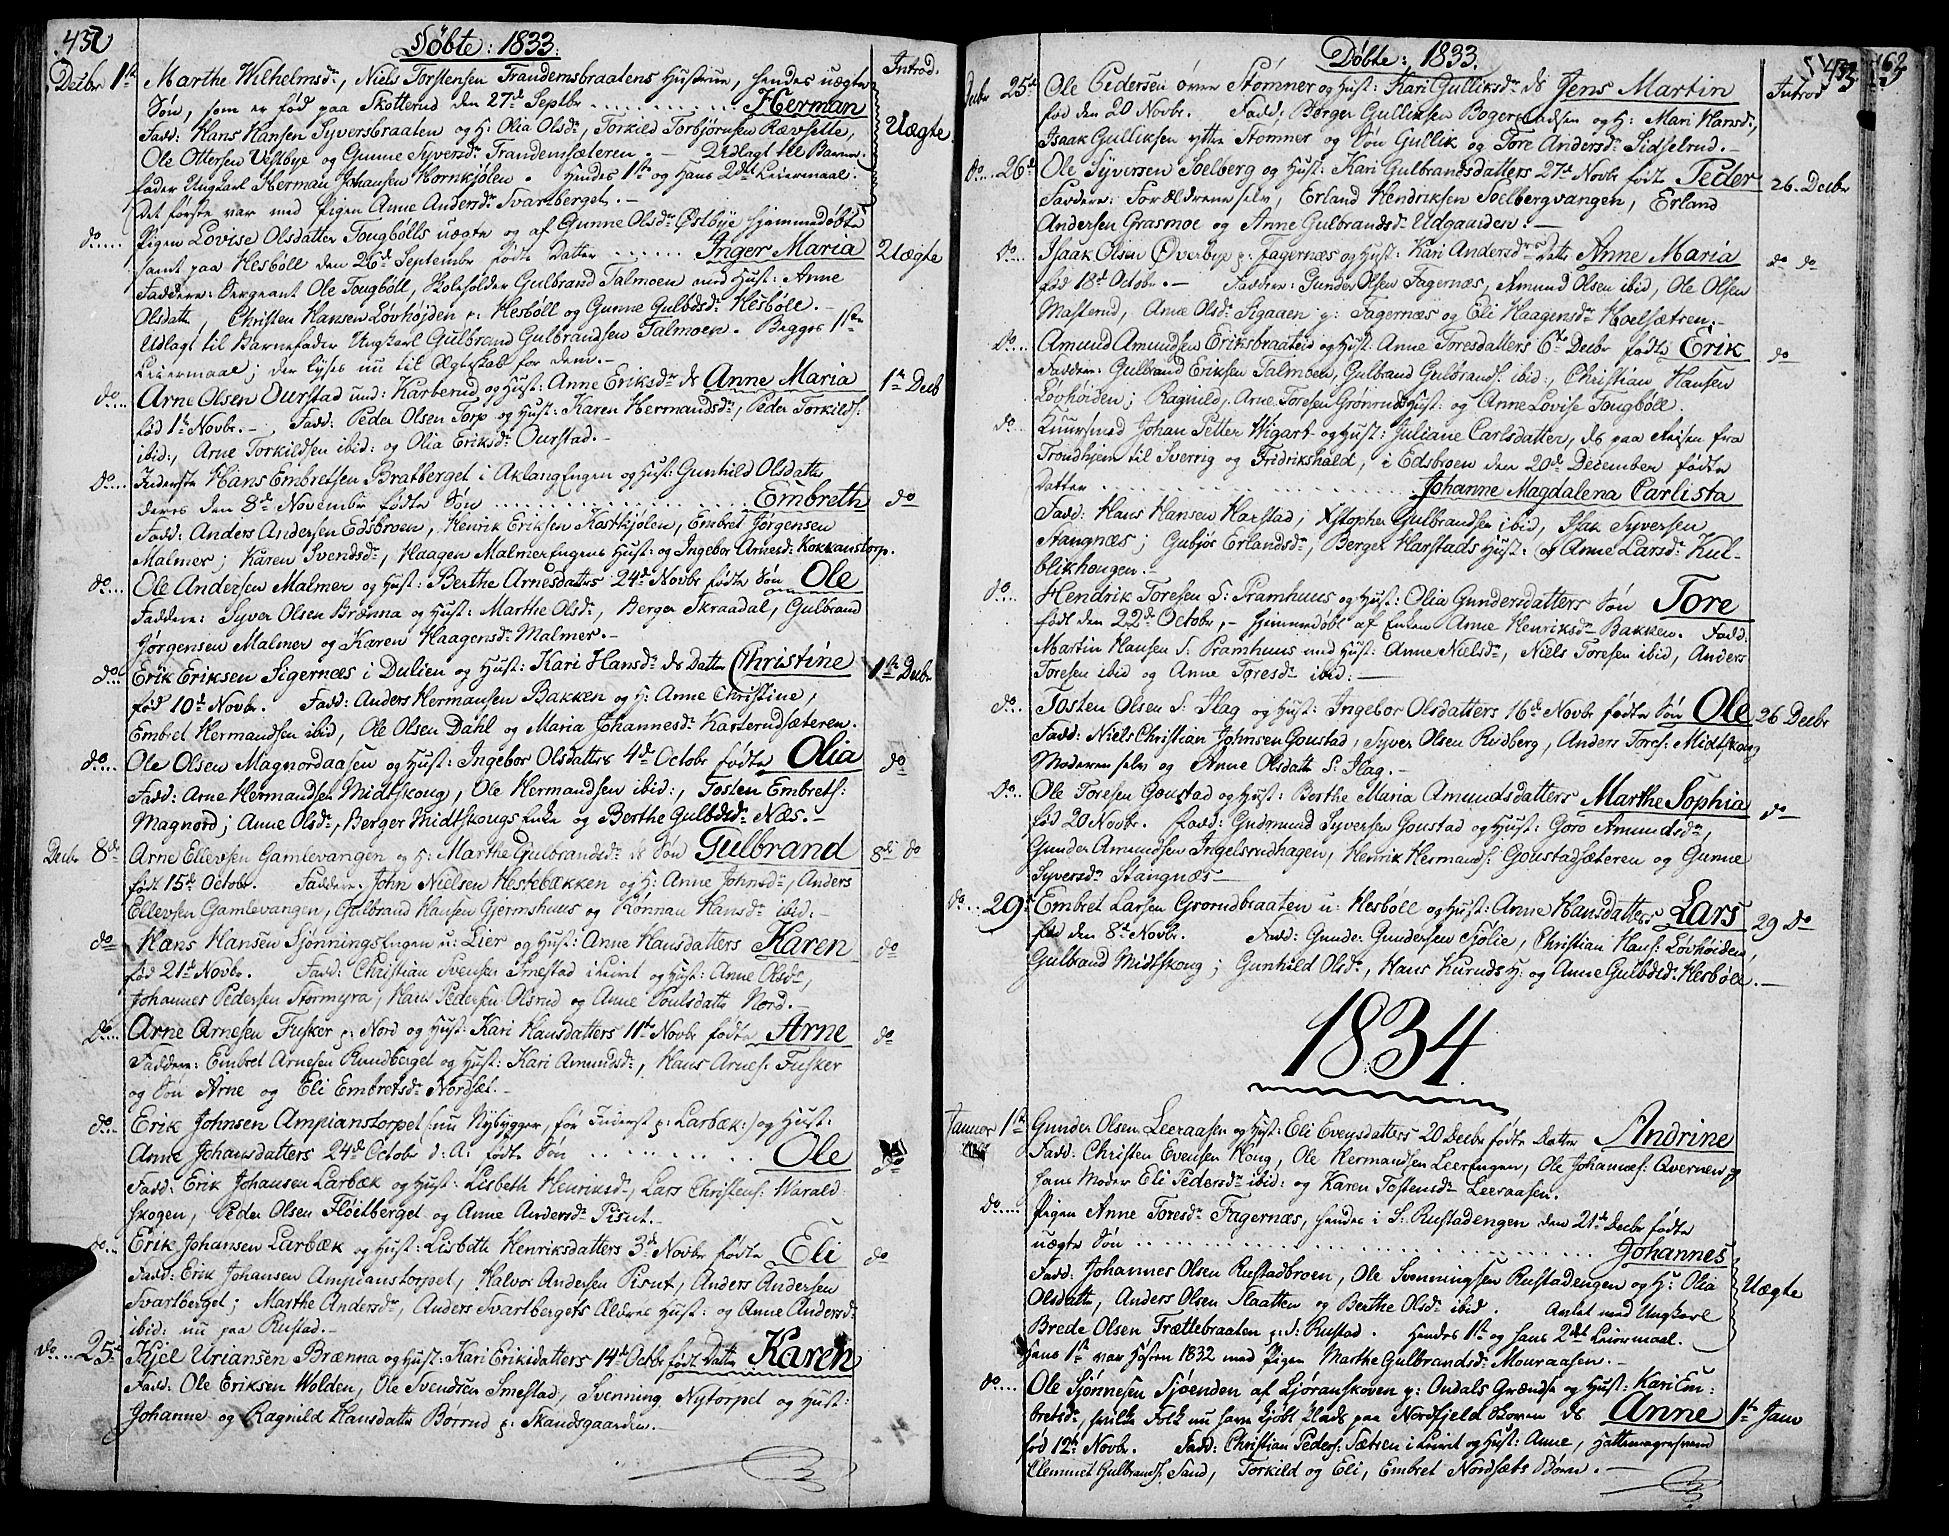 452
Døbte: 1833.
Introd.
Decbr 1ste Marthe Wilhelmsdr, Niels Torstensen Trandemsbraatens Hustrue, hendes uægte
Søn, som er fød paa Skotterud den 27de Septbr ........ Herman
Uægte.
Fadd: Hans Hansen Syversbraaten og H: Olia Olsdr, Torkild Torbjørnsen Rævsette,
Ole Ottersen Vestbye og Gunne Syversdr Trandemsæteren. — Udlagt til Barne-
fader Ungkarl Herman Johansen Hornkjølen. Hendes 1ste og Hans 2det Leiermaal.
Det første var med Pigen Anne Andersdr Svartberget. —
do.... Pigen Lovise Olsdatter Tougbølls uægte og af Gunne Olsdr Østbye hjemmedøbte
samt paa Hesbøll den 26de Septembr fødte Datter ...... Inger Maria
Uægte
Faddere: Sergeant Ole Tougbøll, Skoleholder Gulbrand Talmoen med Hust: Anne
Olsdattr, Christen Hansen Løvhøjden p: Hesbøll og Gunne Gulbdsdr Hesbøll. —
Udlagt til Barnefader Ungkarl Gulbrand Gulbrandsen Talmoen. Begges 1ste
Leiermaal; der lyses nu til Ægteskab for dem. —
do... Arne Olsen Ourstad und: Karterud og Hust: Anne Eriksdr ds Anne Maria
1ste Decb
fød 1ste Novbr. —, Fadd: Peder Olsen Torp og Hust: Karen Hermandsdr, Peder Torkilds:
ibid:, Arne Torkildsen ibid: og Olia Eriksdr Ourstad. —
do... Inderste Hans Embretsen Bratberget i AklangEngen og Hust: Gunhild Olsdattr
deres den 8de Novembr fødte Søn ............ Embreth
do
Fadd: Anders Andersen Edsbroen, Henrik Eriksen Kastkjølen, Embret Jørgensen
Malmer; Karen Svendsdr, Haagen MalmerEngens Hust: og Ingebor Arnesdr Kokkanstorp.
do... Ole Andersen Malmer og Hust: Berthe Arnesdatters 24de Novbr fødte Søn Ole
Faddere: Syver Olsen Brænna og Hust: Marthe Olsdr, Berger Skraadal, Gulbrand
Jørgensen Malmer og Karen Haagensdr Malmer. —
do... Erik Eriksen Sigernæs i Dulien og Hust: Kari Hansdr ds Datter Christine
1ste Decbr
fød 10de Novbr. Fadd: Anders Hermansen Bakken og H: Anne Christine,
Embret Hermandsen ibid, Ole Olsen Dahl og Maria Johannesdr Karterudsæteren.
do... Ole Olsen Magnordaasen og Hust: Ingebor Olsdatters 4de Octobr fødte Olia
do
Fadd: Arne Hermandsen Midtskoug, Ole Hermandsen ibid:, Tosten Embrets:
Magnord; Anne Olsdr, Berger Midtskougs Enke og Berthe Gulbdsdr Næs. —
Decbr 8de Arne Ellevsen Gamlevangen og H: Marthe Gulbrandsdr ds Søn Gulbrand
8de do
født 15de Octobr. Faddere: John Nielsen Hestebækken og H: Anne Johnsdr, Anders
Ellevsen Gamlevangen, Gulbrand Hansen Gjermshuus og Rønnau Hansdr ibid. —
do Hans Hansen SjønningsEngen u: Lier og Hust: Anne Hansdatters Karen
do
fød 21de Novbr. Fadd: Christian Svensen Smestad i Leiret og Hust: Anne Olsdr,
Johannes Pedersen Stormyra, Hans Pedersen Olsrud og Anne Poulsdattr Nord. —
do... Arne Arnesen Fusker p: Nord og Hust: Kari Hansdatters 11te Novbr fødte Arne
do
Faddere: Embret Arnesen Rundberget og Hust: Kari Amundsdr, Hans Arnes: Fusker
og Søn Arne og Eli Embretsdr Nordset. —
do... Erik Johnsen Ampianstorpet (: nu Nybygger, før Inderst p: Larbæk:) og Hust:
Anne Johansdatters 24de Octobr d: A: fødte Søn ........ Ole
do
Fadd: Erik Johansen Larbæk og Hust: Lisbeth Henriksdr, Lars Christens: Varald-
skogen, Peder Olsen Fløitberget og Anne Andersdr Pisut. —
do... Erik Johansen Larbæk og Hust: Lisbeth Henriksdatters 3de Novbr fødte Eli
do
Fadd: Erik Johansen Ampianstorpet, Halvor Andersen Pisut, Anders Andersen
Svartberget; Marthe Andersdr, Anders Svartbergets Ældres Hust: og Anne Andersdr
ibid: nu paa Rustad. —
do.... 25de Kjel Uriansen Brænna og Hust: Kari Eriksdatters 14de Octbr født Dattr Karen
Fadd: Ole Eriksen Wolden, Ole Svendsen Smestad, Svenning Nytorpet og Hust:
Johanne og Ragnild Hansdattr Børrud p: Skandsgaarden. —
Døbte: 1833.
453
162
Introd
Decbr 25de Ole Pedersen øvre Stømmer og Hust: Kari Gulliksdr ds Jens Martin
fød den 20 Novbr. Fadd: Berger Gulliksen Bogerendsen og H: Mari Hansdr,
Isaak Gulliksen ytte Stømmer og Søn Gullik og Tore Andersdr Sidselrud. —
do... 26de Ole Syversen Soelberg og Hust: Kari Gulbrandsdatters 27de Novbr fødte Peder
26. Decbr
Faddere: Forældrene selv, Erland Hendriksen Soelbergvangen, Erland
Andersen Grasmoe og Anne Gulbrandsdr Udgaarden. —
do... Isaak Olsen Overbye p: Fagernæs og Hust: Kari Andersdrs Dattr Anne Maria
do do
fød 18de Octobr. — Faddere: Gunder Olsen Fagernæs, Amund Olsen ibid, Ole Olsen
Masterud, Anne Olsdr Sigaaen p: Fagernæs og Eli Haagensdr Hoelsætren. —
do... Amund Amundsen Eriksbraaten og Hust: Anne Toresdatters 6te Decbr fødte Erik
do
Faddere: Gulbrand Eriksen Talmoen, Gulbrand Gulbrands: ibid:, Christian Hansen
Løvhøiden; Ragnild, Arne Toresen Grønruds Hust: og Anne Lovise Tougbøll.
do... Kuursmed Johan Petter Wigart og Hust: Juliane Carlsdatter, ds paa Reisen fra
Trondhjem til Sverrig og Fridrikshald, i Edsbroen den 20de December fødte
Datter ............ Johanne Magdalena Carlista
Fadd: Hans Hansen Harstad, Xstopher Gulbrandsen ibid, Isak Syversen
Stangnæs; Gubjør Erlandsdr, Berger Harstads Hust: og Anne Larsdr Kul-
blikhougen. —
do... Hendrik Toresen S: Pramhuus og Hust: Olia Gundersdatters Søn Tore
født den 22de Octobr, — hjemmedøbt af Enken Anne Henriksdr Bakken. Fadd:
Martin Hansen S: Pramhuus med Hust: Anne Nielsdr, Niels Toresen ibid, Anders
Toresen ibid og Anne Toresdr ibid: —
do... Tosten Olsen S: Flag og Hust: Ingebor Olsdatters 16de Novbr fødte Søn Ole
26 Decbr
Fadd: Niels Christian Johnsen Goustad, Syver Olsen Rudberg, Anders Tores: Midtskoug
Moderen selv og Anne Olsdattr S: Flag. —
do... Ole Toresen Goustad og Hust: Berthe Maria Amundsdatters Marthe Sophia
do
fød 20 Novbr. Fadd: Gudmund Syversen Goustad og Hust: Goro Amundsdr,
Gunder Amundsen Ingelsrudhagen, Henrik Hermands: Goustadsæteren og Gunne
Syversdr Stangnæs —
do... 29de Embret Larsen Grorudbraaten u: Hesbøll og Hust: Anne Hansdatters Lars
29 do
fød den 8de Novbr. Fadd: Gunder Gundersen Sjølie, Christian Hans: Løvhøiden,
Gulbrand Midtskoug; Gunhild Olsdr, Hans Kuruds H: og Anne Gulbdsdr Hesbøll. —
1834.
Januar 1ste Gunder Olsen Leeraasen og Hust: Eli Evensdatters 20 Decbr fødte Datter Andrine
Fadd: Christen Evensen Skoug, Ole Hermandsen Leerengen, Ole Johannes: Qvernen og
hans Moder Eli Pedersdr ibid: og Karen Tostensdr Leeraasen.
do.... Pigen Anne Toresdr Fagernæs, hendes i S: Rustadengen den 21de Decbr fødte
uægte Søn ............ Johannes
Uægte
Fadd: Johannes Olsen Rustadbroen, Ole Svenningsen Rustadengen og H: Olia
Olsdattr, Anders Olsen Slaatten og Berthe Olsdr ibid. Avlet med Ungkarl
Brede Olsen Trættebraaten p: S: Rustad. Hendes 1ste og hans 2det Leiermaal.
Hans 1ste var Høsten 1832 med Pigen Marthe Gulbrandsdr Mouraasen. —
do.... Ole Sjønnesen Sjøenden af Ljøranskoven p: Ondals Grændse og Hust: Kari Em-
bretsdr, hvilke Folk nu have kjøbt Plads paa Nordfjeld Skoven ds Anne
1ste Janu
fød 12te Novbr. Fadd: Christian Peders: Sætren i Leiret og Hust: Anne, Hattemagersvend
Clemmet Gulbrands: Sand, Torkild og Eli, Embret Nordsæts Børn. —